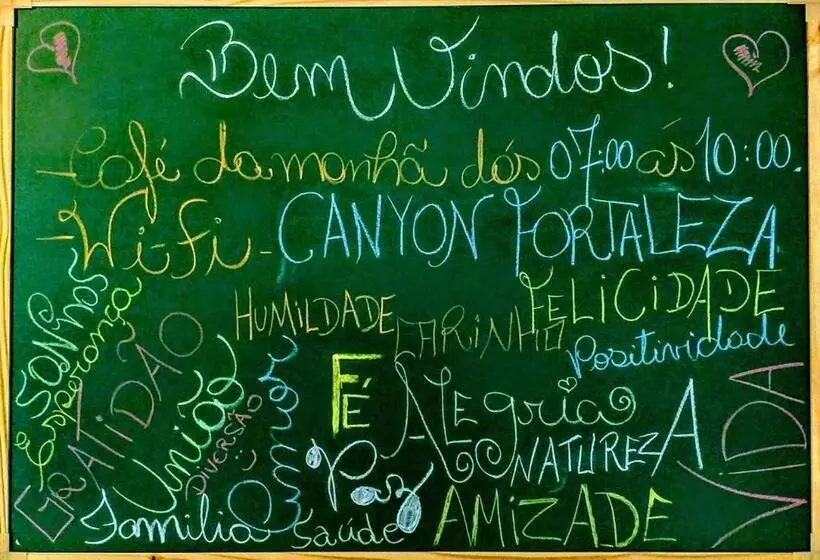 Bem Vindos!
-Café da manhã dás 07:00 ás 10:00.
-Wi-Fi - CANYON FORTALEZA
SONHOS
Esperança
GRATIDÃO
União
DIVERSÃO
Amor
HUMILDADE
CARINHO
FELiCiDADE
Positividade
FÉ
ALEgria
NATUREZA
Paz
ViDA
Familia
Saúde
AMiZADE